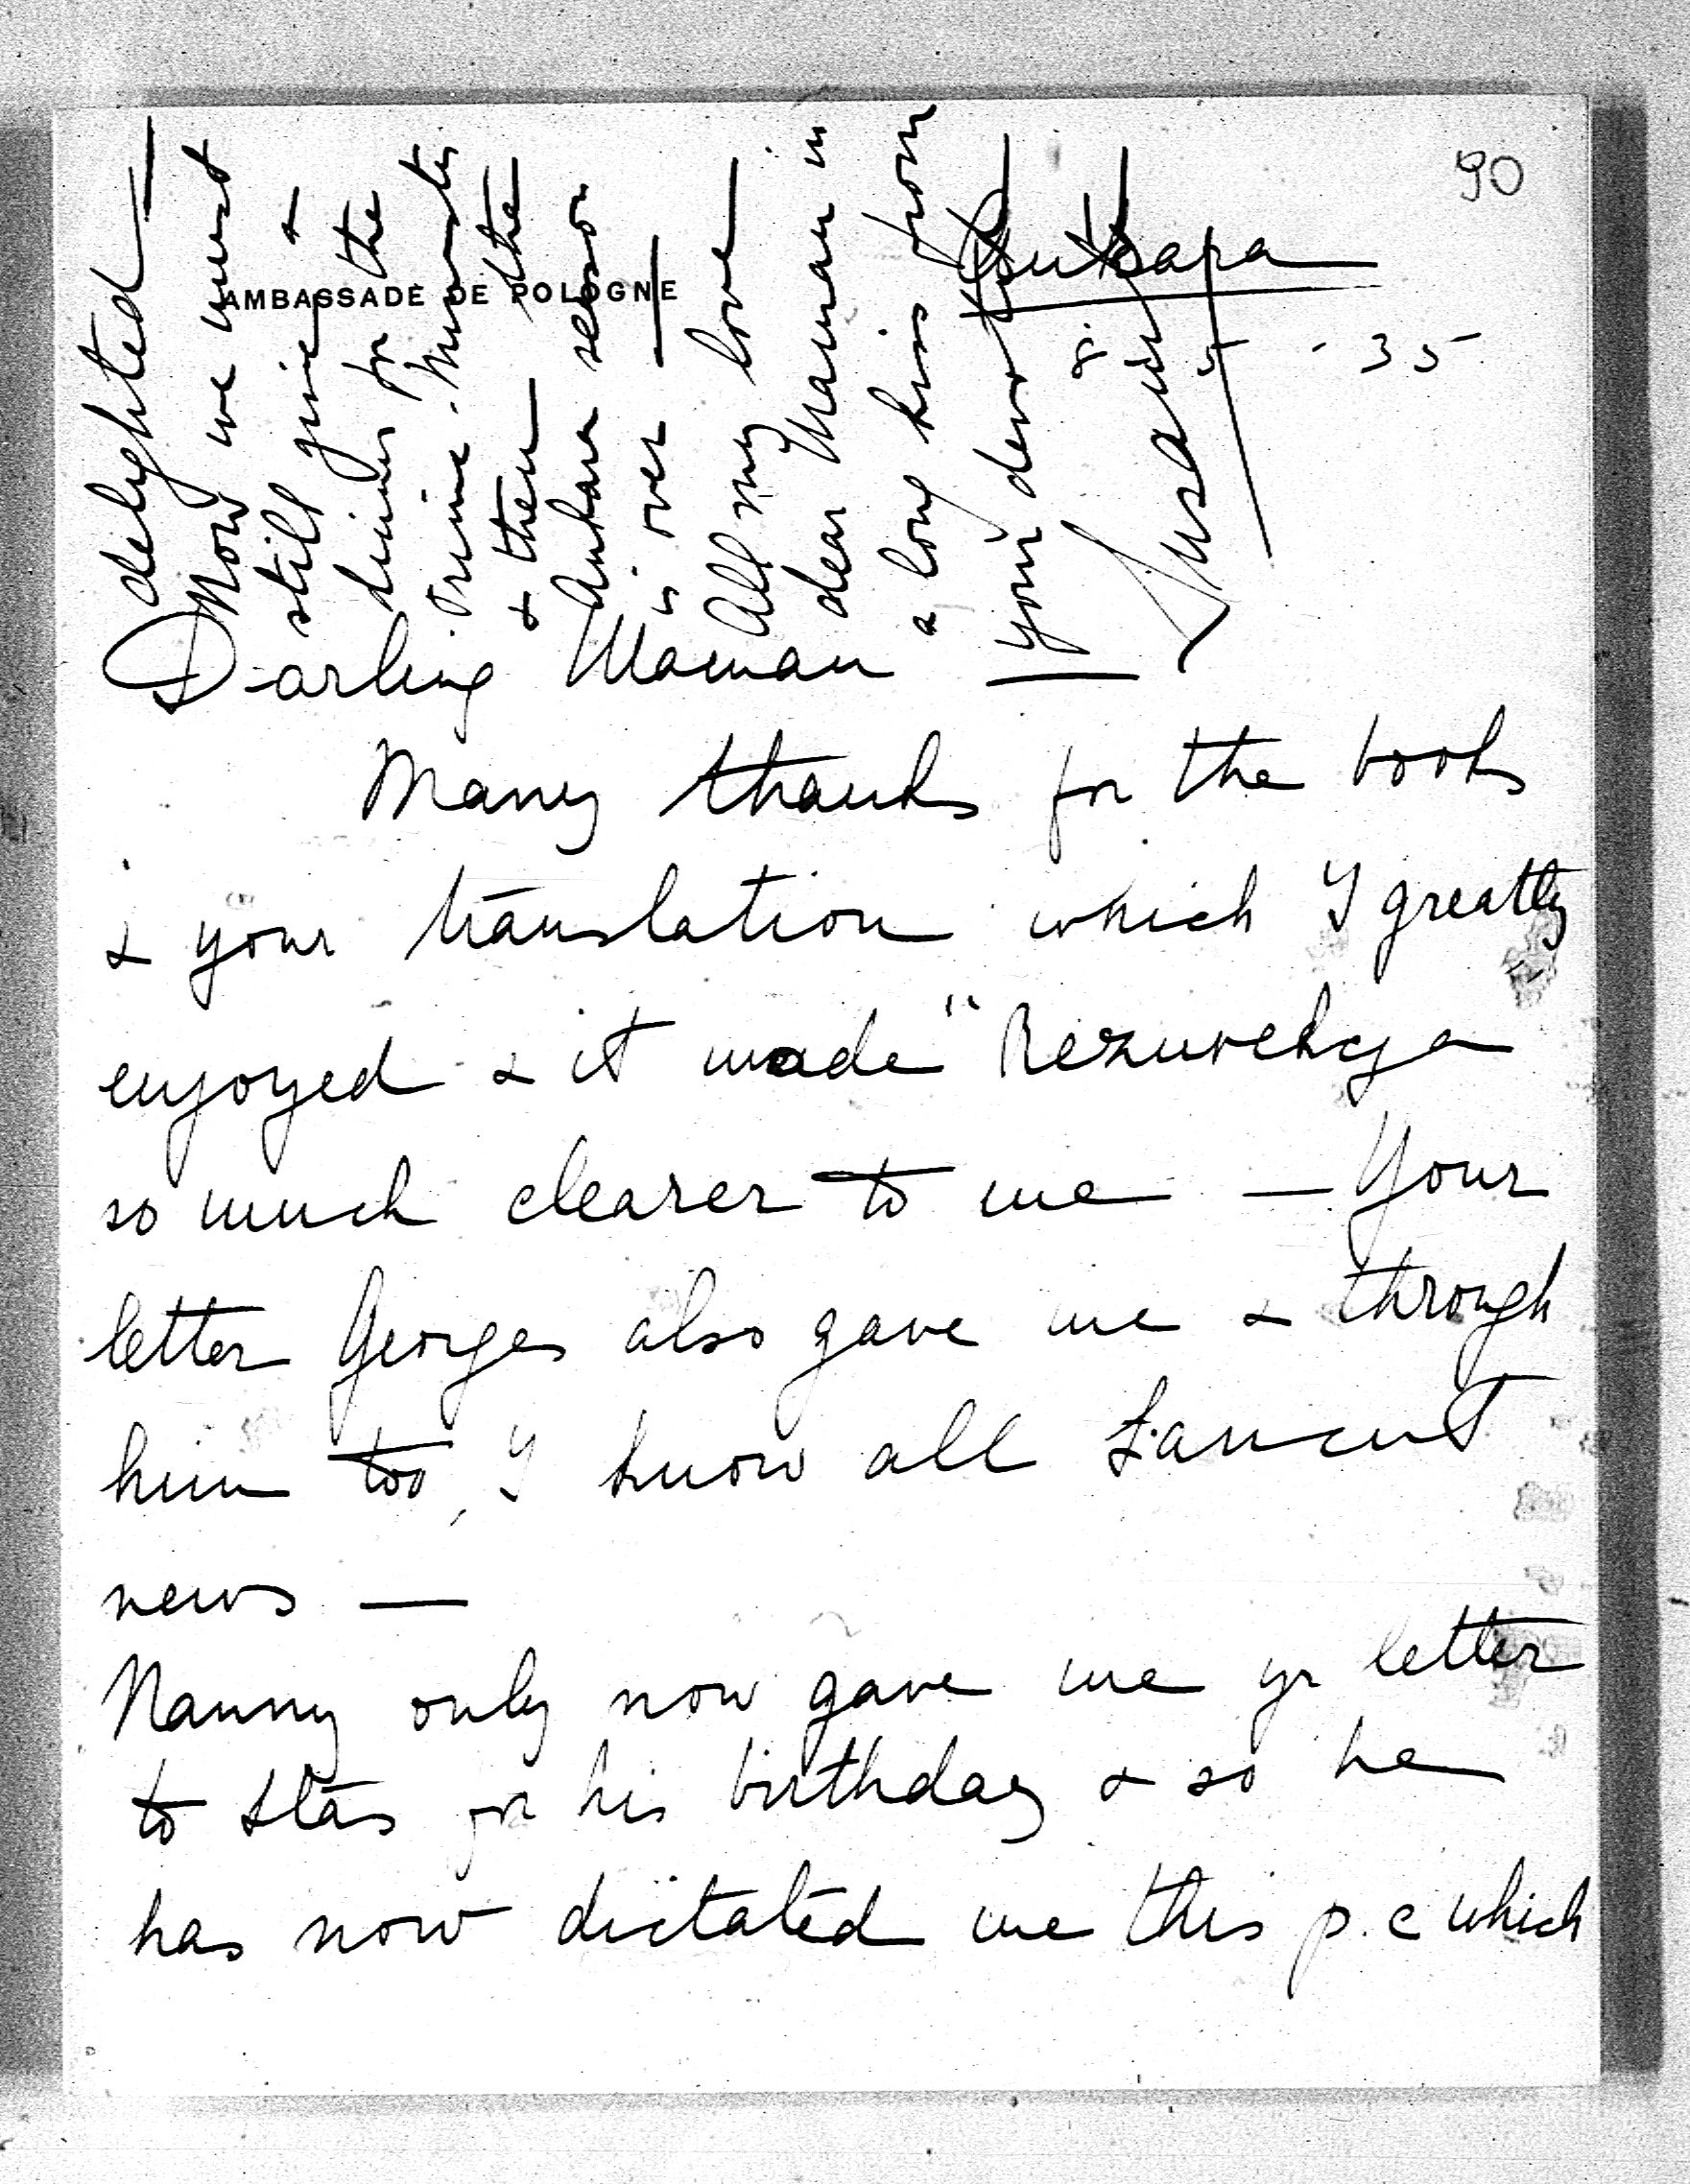 90
AMBASSADE DE POLOGNE
Ankara
8. 5 - 35
Darling Maman
Many thanks for the books
& your translation which I greatly
enjoyed & it made "Rezurekcja
so much clearer to me — Your
letter Georges also gave me & through
him too, I know all Łancut
news —
Nanny only now gave me yr letter
to Stas for his birthday & so he
has now dictated me this p.c which
delighted —
Now we must
still give a
dinner for the
Prime-Minister
& then the
Ankara season
is over —
All my love
dear Maman in
a long kiss from
your devoted